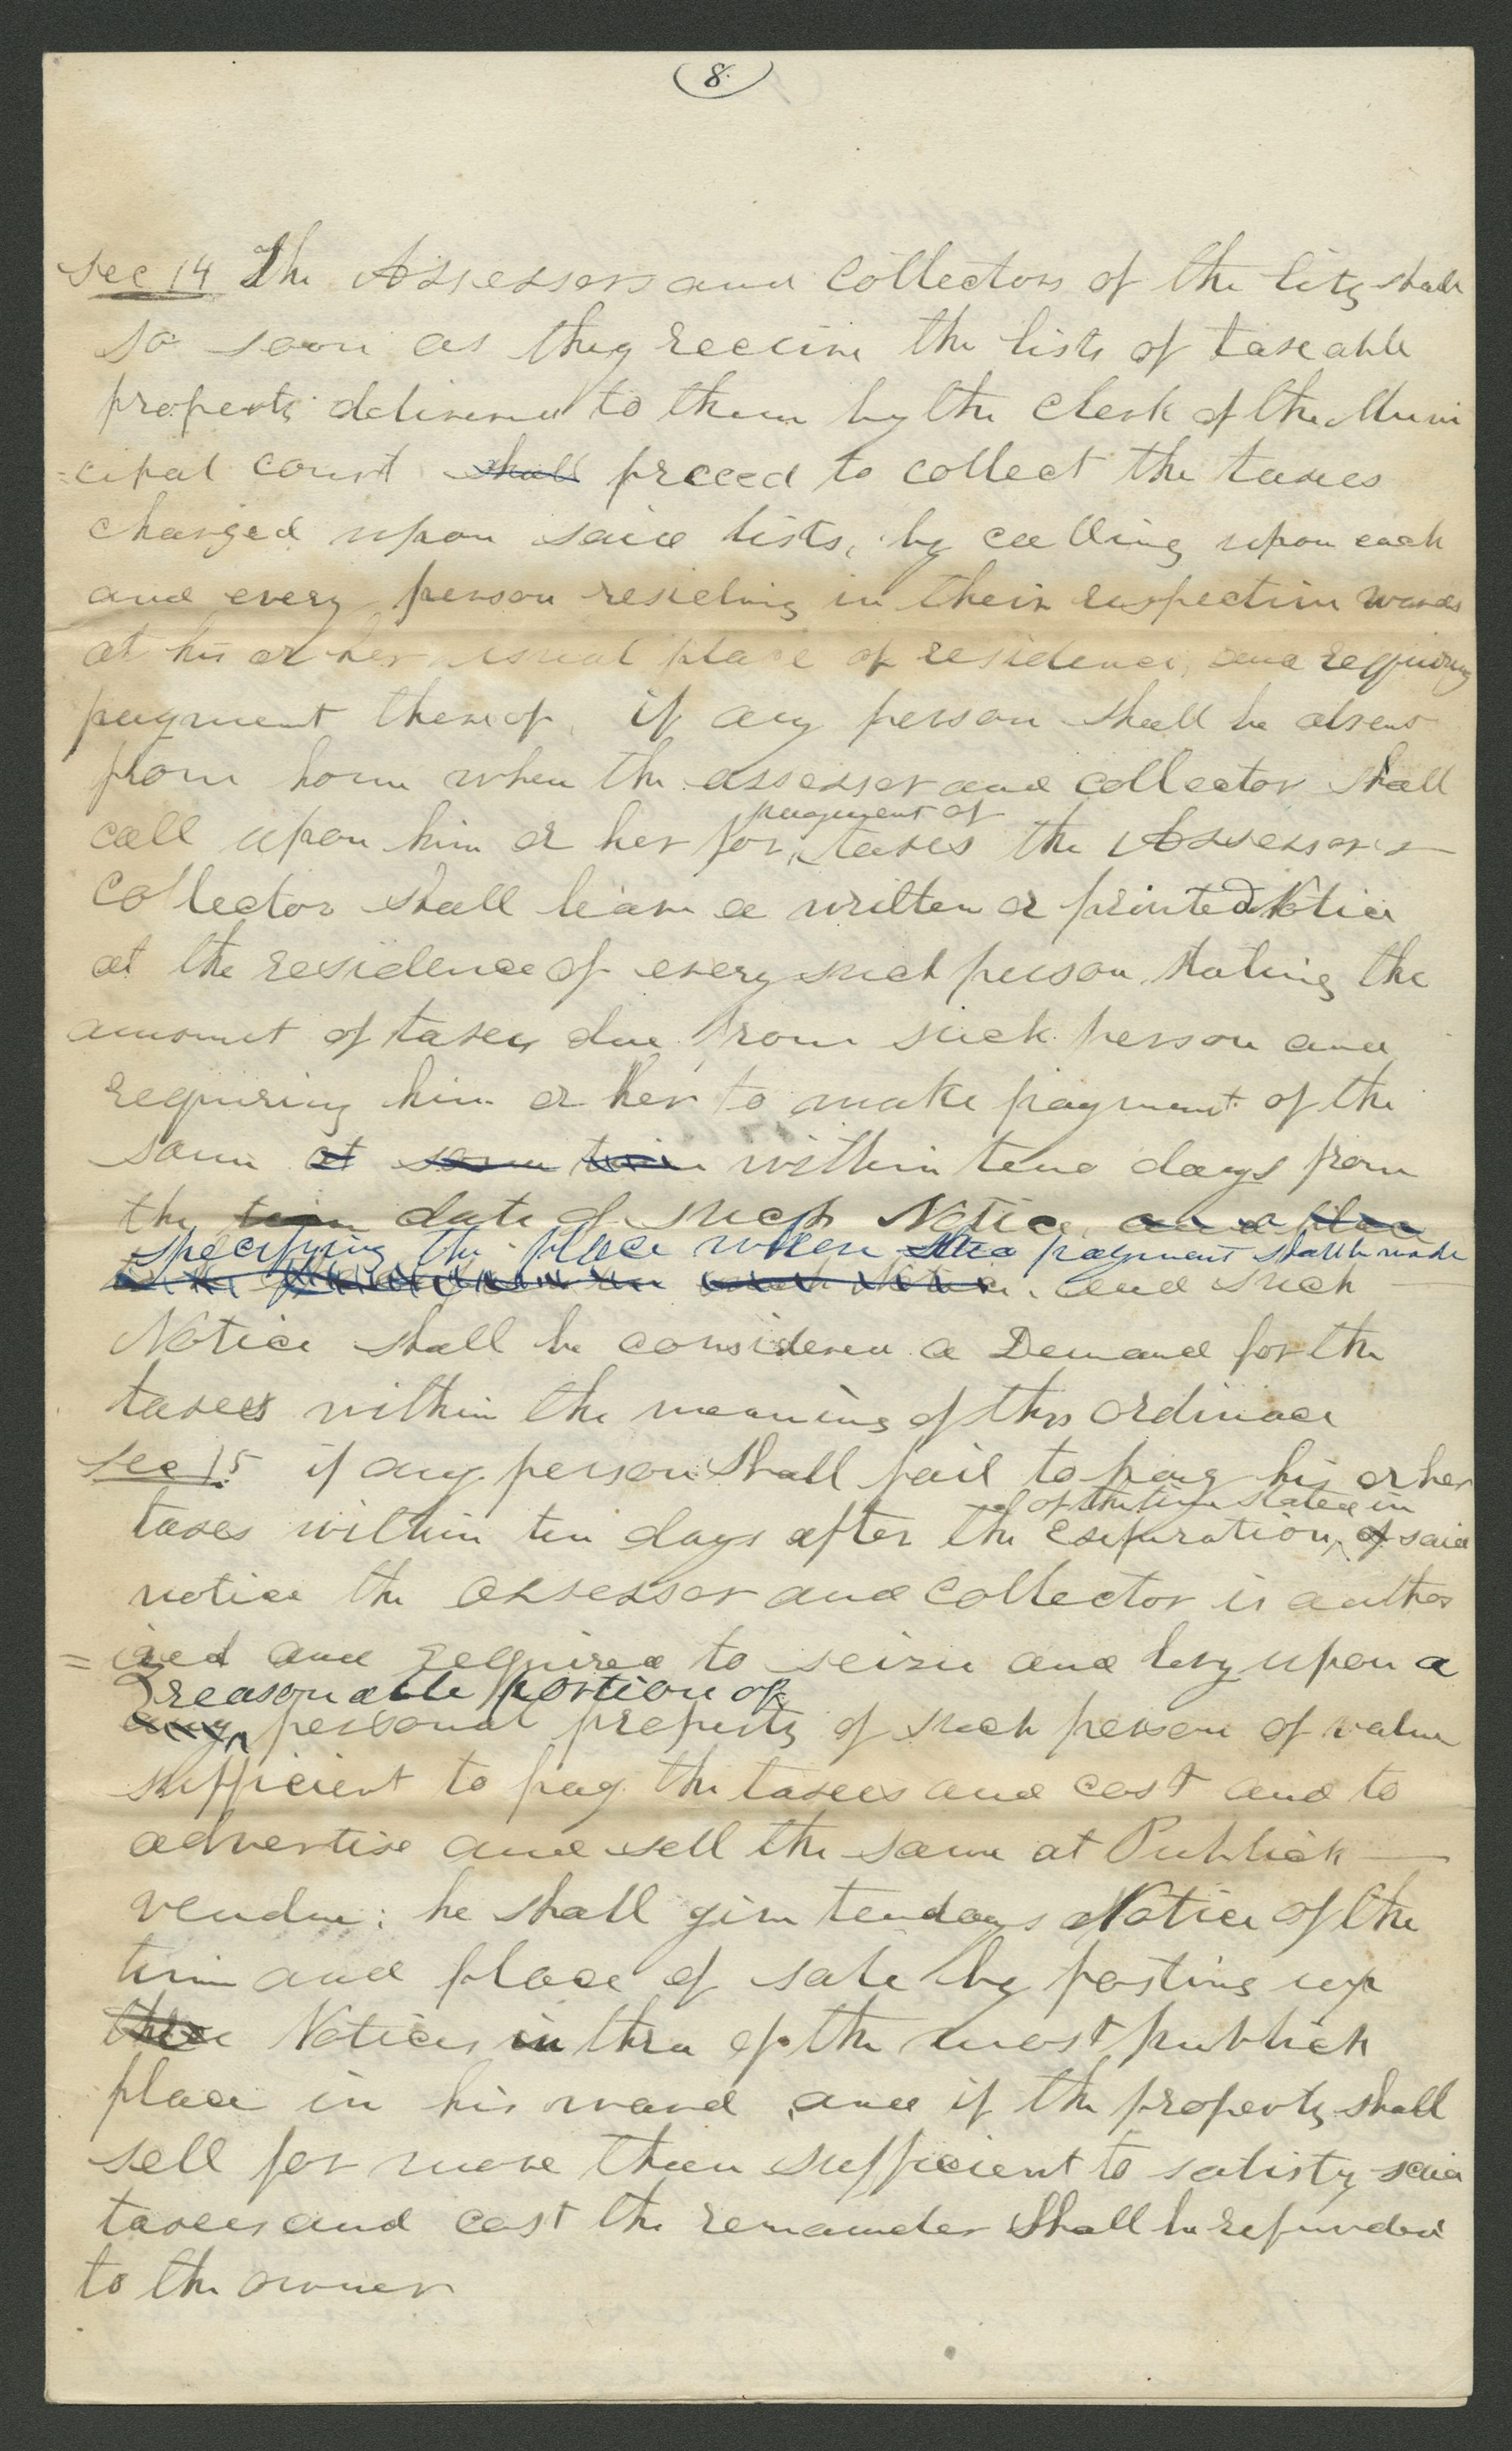 (8.)
Sec 14 The Assessors and Collectors of the City shall
so soon as they receive the lists of taxeable
property delivered to them by the Clerk of the Muni
=cipal court shall preceed to collect the taxes
charged upon said lists, by calling upon each
and every person resideing in their respective wards
at his or her usual place of residence, and requiring
payment thereof, if any person shall be absent
from home when the assesser and collector shall
payment of
call upon him or her for, taxes the Assessor &
Collector shall leave a written or printed Notice
at the residence of every such person stating the
amount of taxes due from such person and
requiring him or her to make payment of the
same at some time within tene days from
the time date of such Notice, and a place
specifying the place where the payment shall be made
and such
Notice shall be considered a Demand for the
taxees within the meaning of this ordinace
Sec 15 if any person Shall fail to pay his or her
of the time stated in
taxes within ten days after the expiration, of said
notice the assesser and collector is author
=ized and required to seize and levy upon a
reasonable portion of
any personal property of such person of value
sufficient to pay the taxees and cost and to
advertise and sell the same at Publick
vendue: he shall give ten days Notice of the
time and place of sale by posting up
three Notices in three of the most publick
place in his ward and if the property shall
sell for more then sufficient to satisty said
taxees and cost the remainder Shall be refunded
to the owner